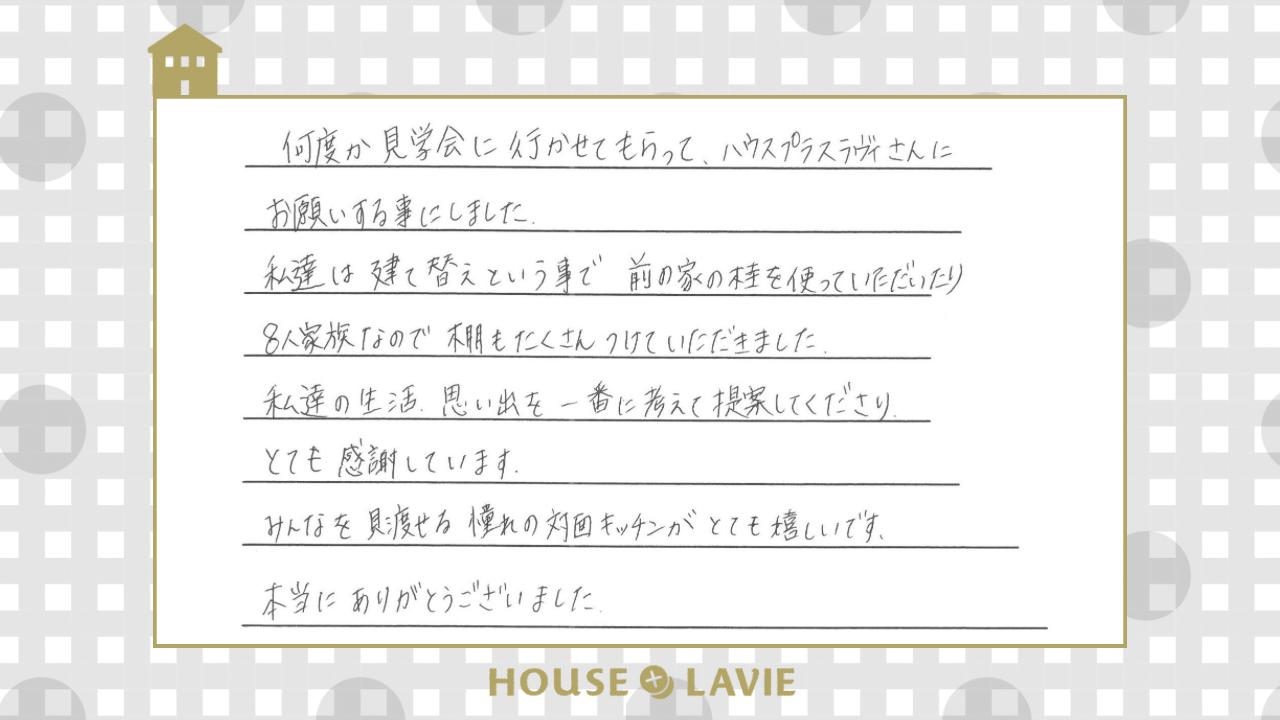 何度か見学会に行かせてもらって、ハウスプラスラヴィさんに
お願いする事にしました。
私達は建て替えという事で 前の家の柱を使っていただいたり
8人家族なので棚もたくさんつけていただきました。
私達の生活、思い出を一番に考えて提案してくださり、
とても感謝しています。
みんなを見渡せる憧れの対面キッチンがとても嬉しいです。
本当にありがとうございました。
HOUSE + LAVIE